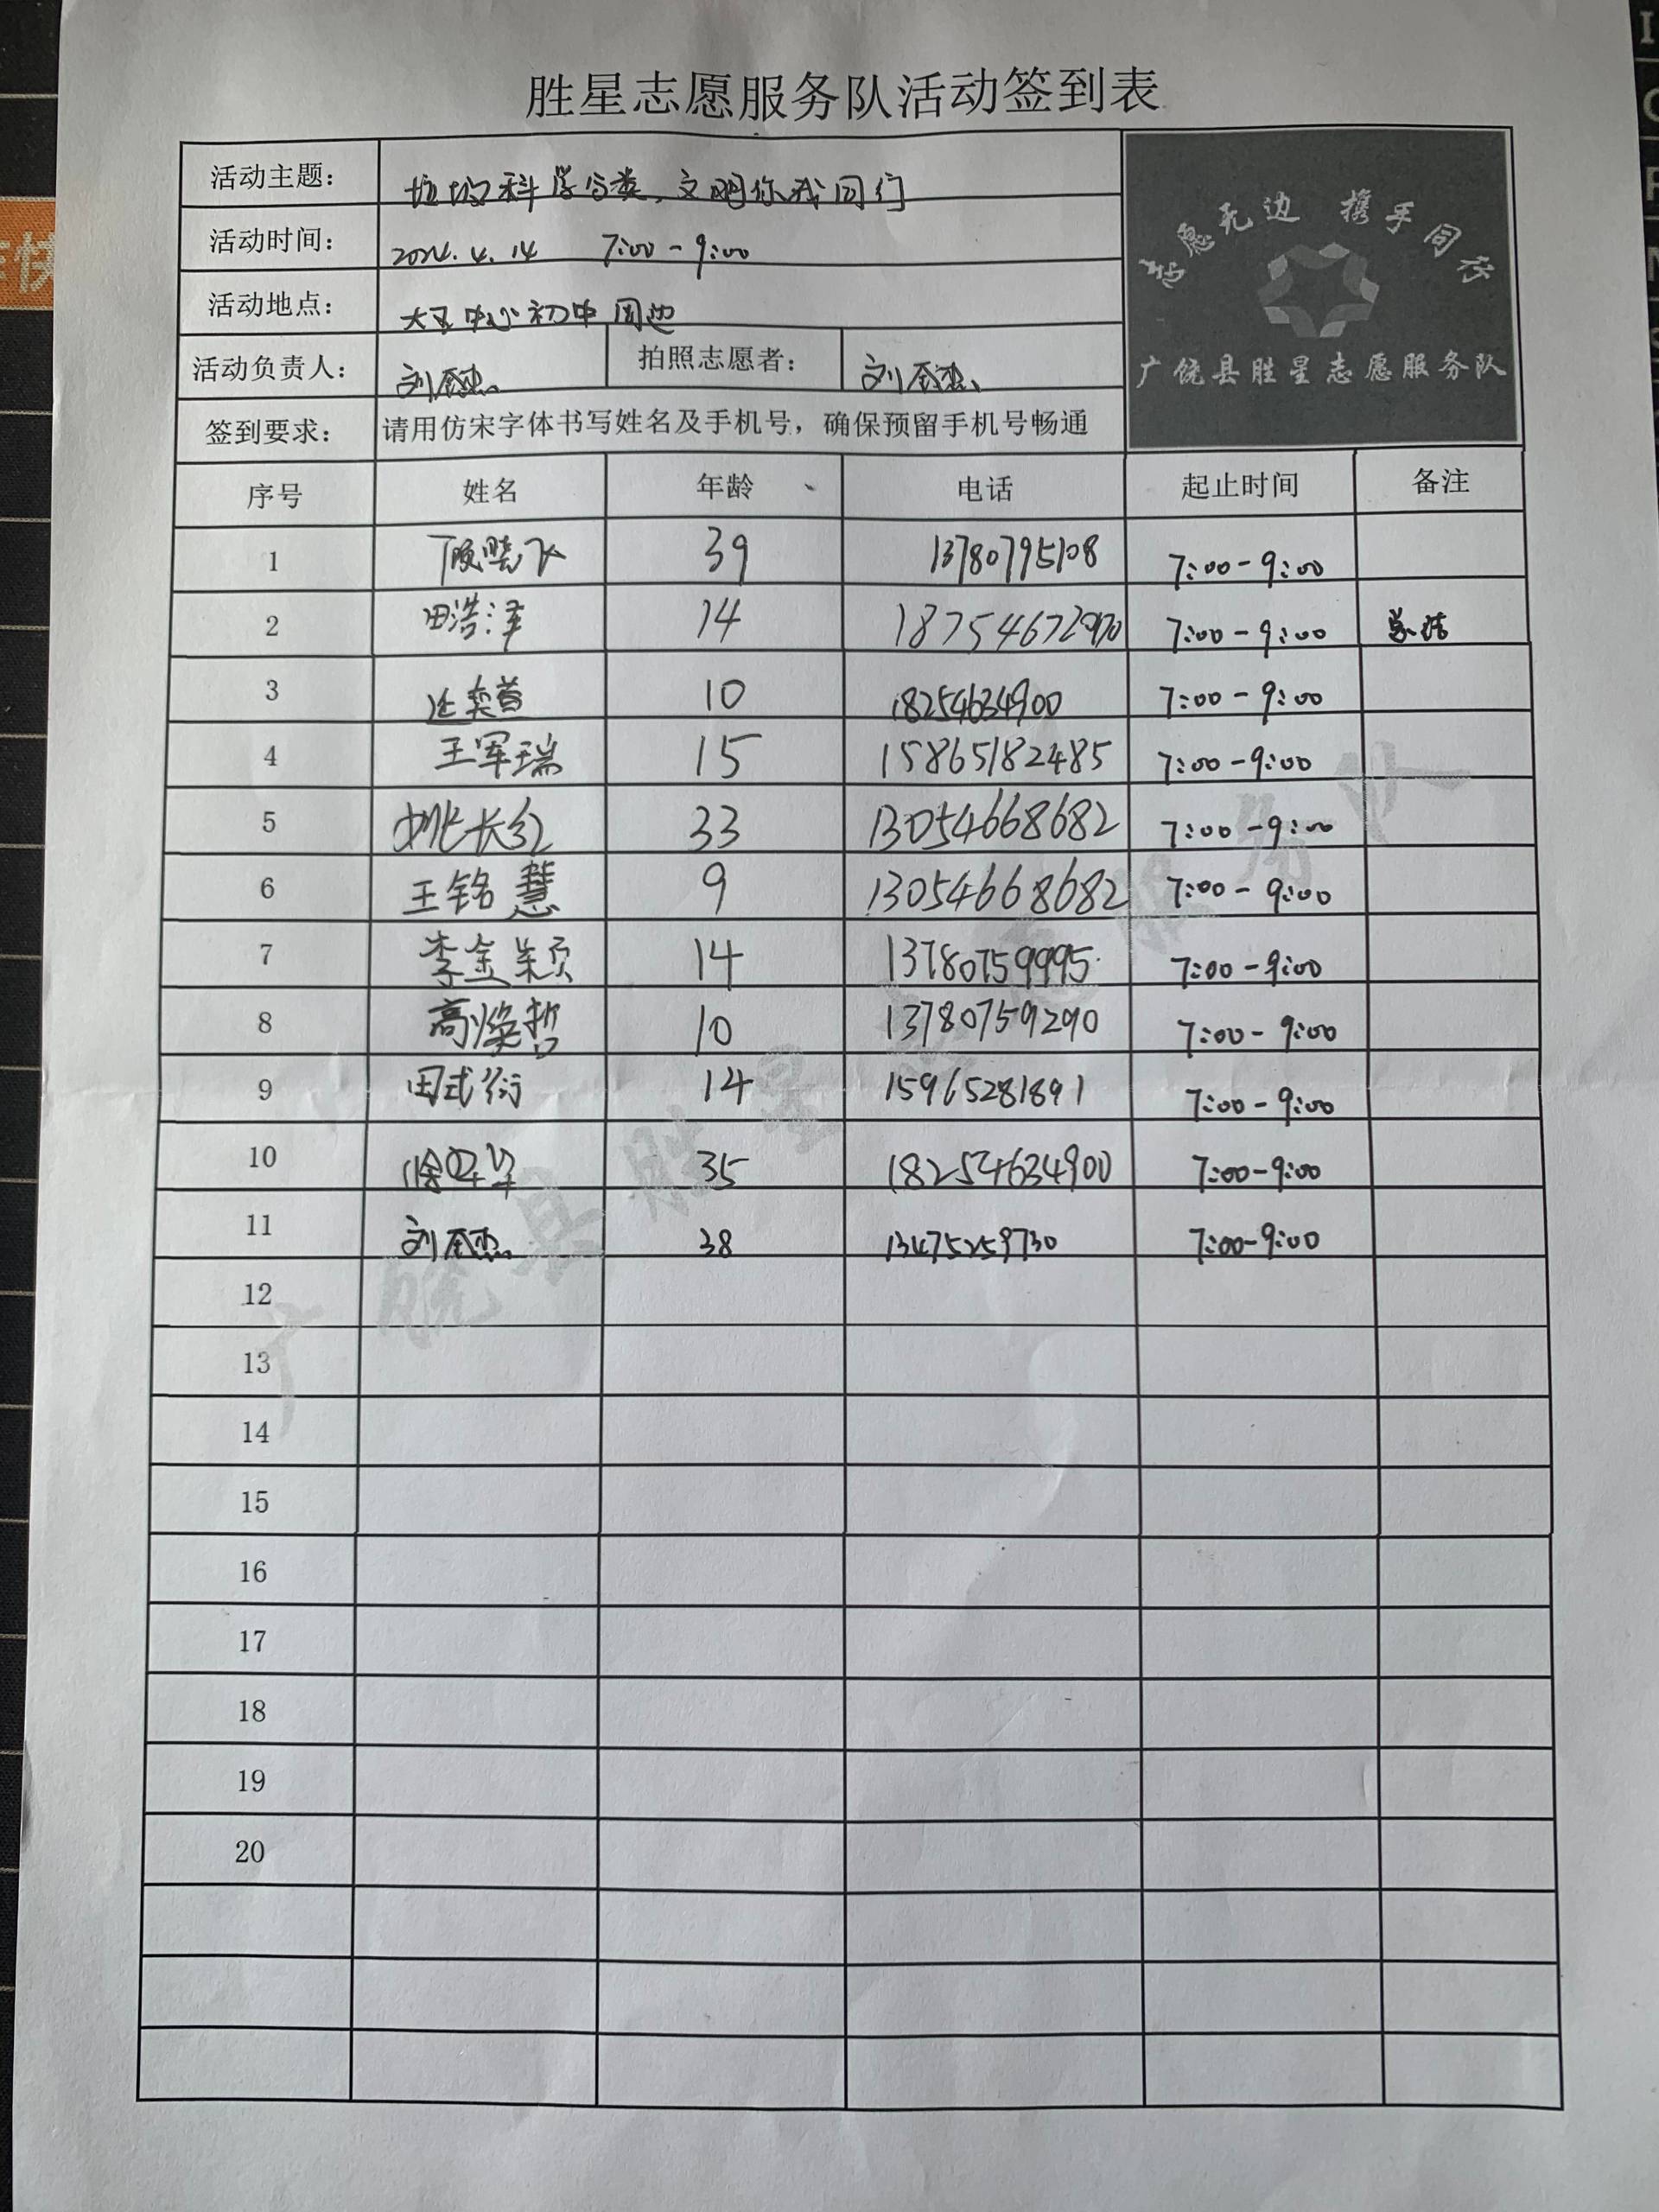 胜星志愿服务队活动签到表
活动主题： 垃圾科学分类，文明你我同行
志愿无边 携手同行
活动时间： 2024.4.14 7:00-9:00
活动地点： 大王中心初中周边
活动负责人： 刘 拍照志愿者： 刘
广饶县胜星志愿服务队
签到要求： 请用仿宋字体书写姓名及手机号，确保预留手机号畅通
序号 姓名 年龄 电话 起止时间 备注
1 39 13780795108 7:00-9:00
2 田浩泽 14 187546729 7:00-9:00 总结
3 10 18254634900 7:00-9:00
4 王军瑞 15 15865182485 7:00-9:00
5 姚长红 33 13054668682 7:00-9:00
6 王铭慧 9 13054668682 7:00-9:00
7 李金颖 14 13780759995 7:00-9:00
8 高焕哲 10 13780759290 7:00-9:00
9 田式衍 14 15965281891 7:00-9:00
10 徐 35 18254634900 7:00-9:00
11 刘 38 13475259730 7:00-9:00
12
13
14
15
16
17
18
19
20
广饶县胜星志愿服务队